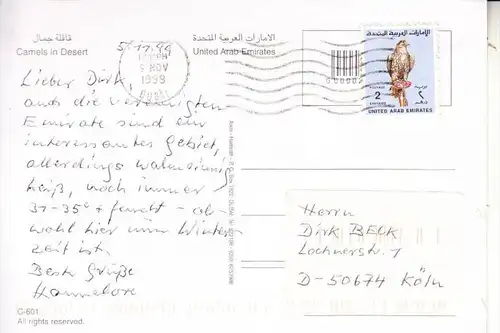 قافلة جمال
Camels in Desert
الامارات العربية المتحدة
United Arab Emirates
5 NOV
1998
Dubai
الامارات العربية المتحدة
POSTAGE
2
UNITED ARAB EMIRATES
Lieber Dirk
auch die vereinigten
Emirate sind ein
interessantes Gebiet,
allerdings wahnsinnig
heiß, noch immer
31-35° + feucht - ob-
wohl hier im Winter
zeit ist.
Beste Grüße
Hannelore
Herrn
Dirk BECK
Lochnerstr. 1
D-50674 Köln
C-601
All rights reserved.